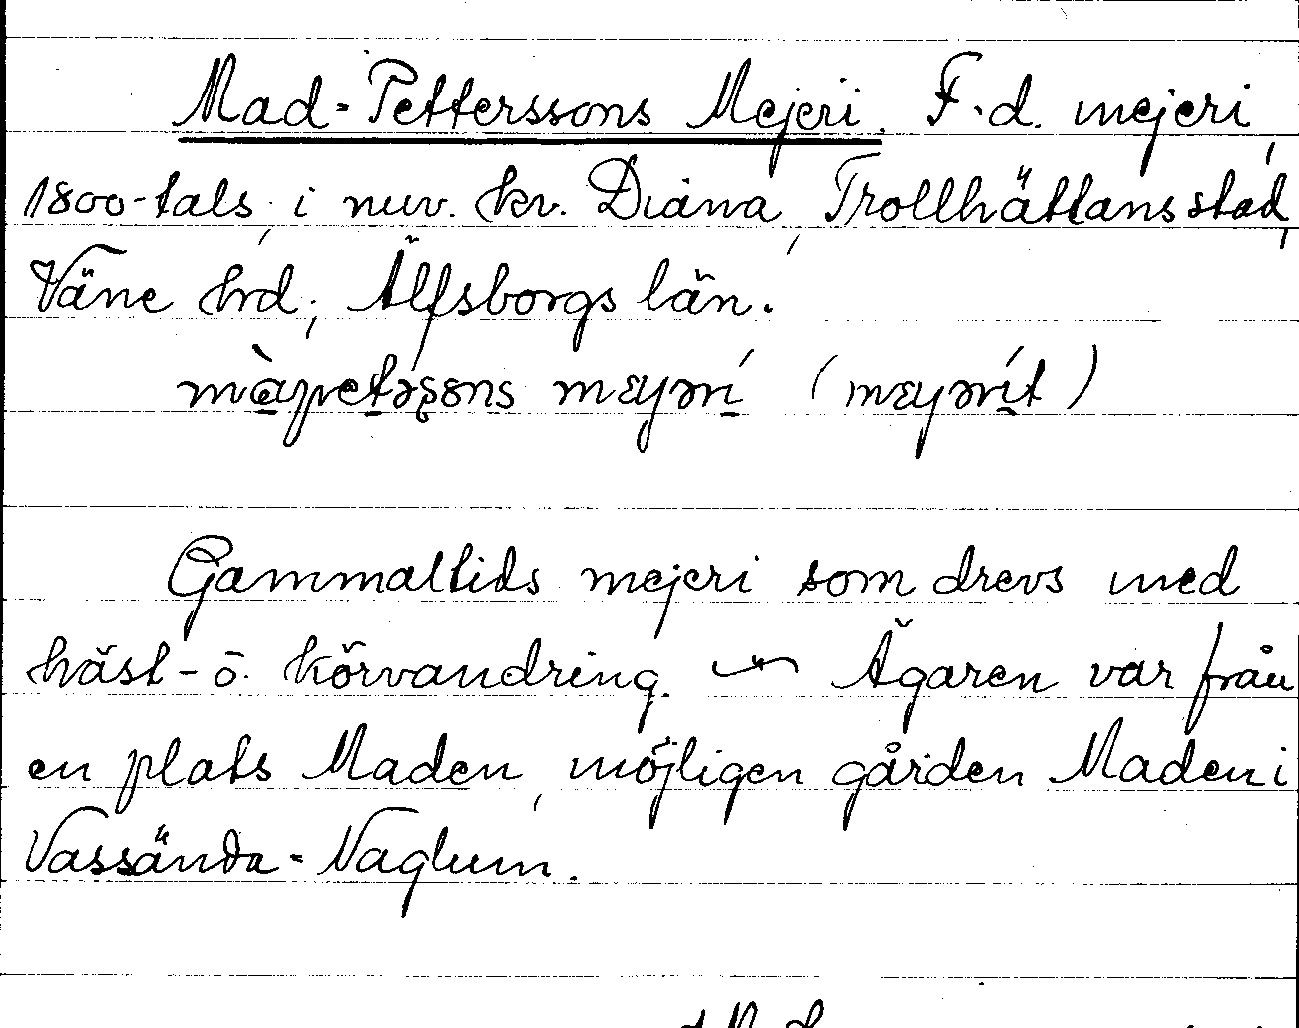 Mad-Pettersons Mejeri. F.d. mejeri,
1800-tals, i nuv. kv. Diana, Trollhättans stad,
Väne hrd, Älfsborgs län.
Gammaltids mejeri som drevs med
häst- o. körvandring. — Ägaren var från
en plats Maden, möjligen gården Maden i
Vassända-Naglum.